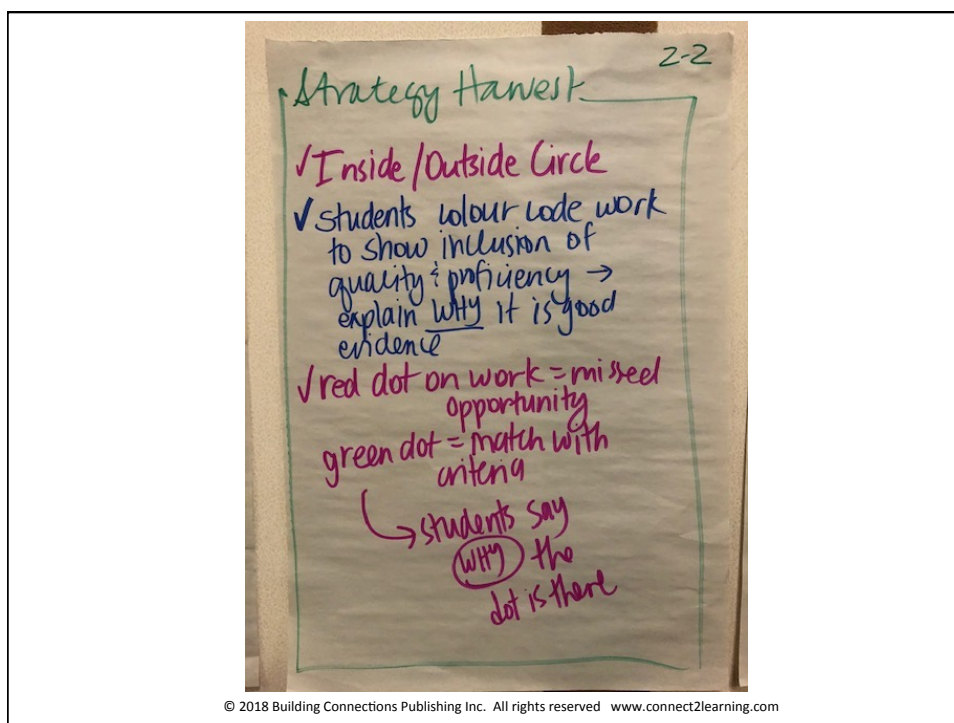 2-2
Strategy Harvest
✓ Inside/Outside Circle
✓ Students colour code work
to show inclusion of
quality & proficiency →
explain WHY it is good
evidence
✓ red dot on work = missed
opportunity
green dot = match with
criteria
→ students say
WHY the
dot is there
© 2018 Building Connections Publishing Inc. All rights reserved www.connect2learning.com